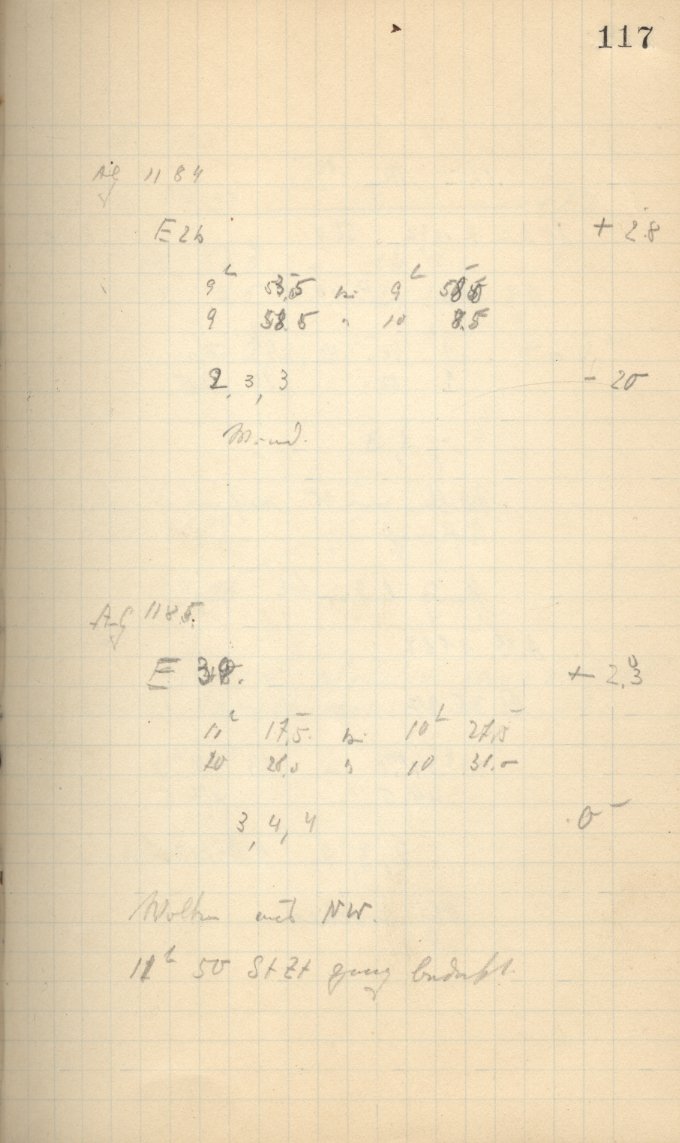 117
Ag 1184
E 26 + 2.8
9h 53,5 bis 9h 58,5
9 58.5 " 10 8.5
2, 3, 3 - 20
Wind.
Ag 1185.
E + 2,3
17,5 bis 10h 27,5
28,0 " 10 31.0
3, 4, 4 0
Wolken aus NW.
11h 50 StZt ganz bedeckt.